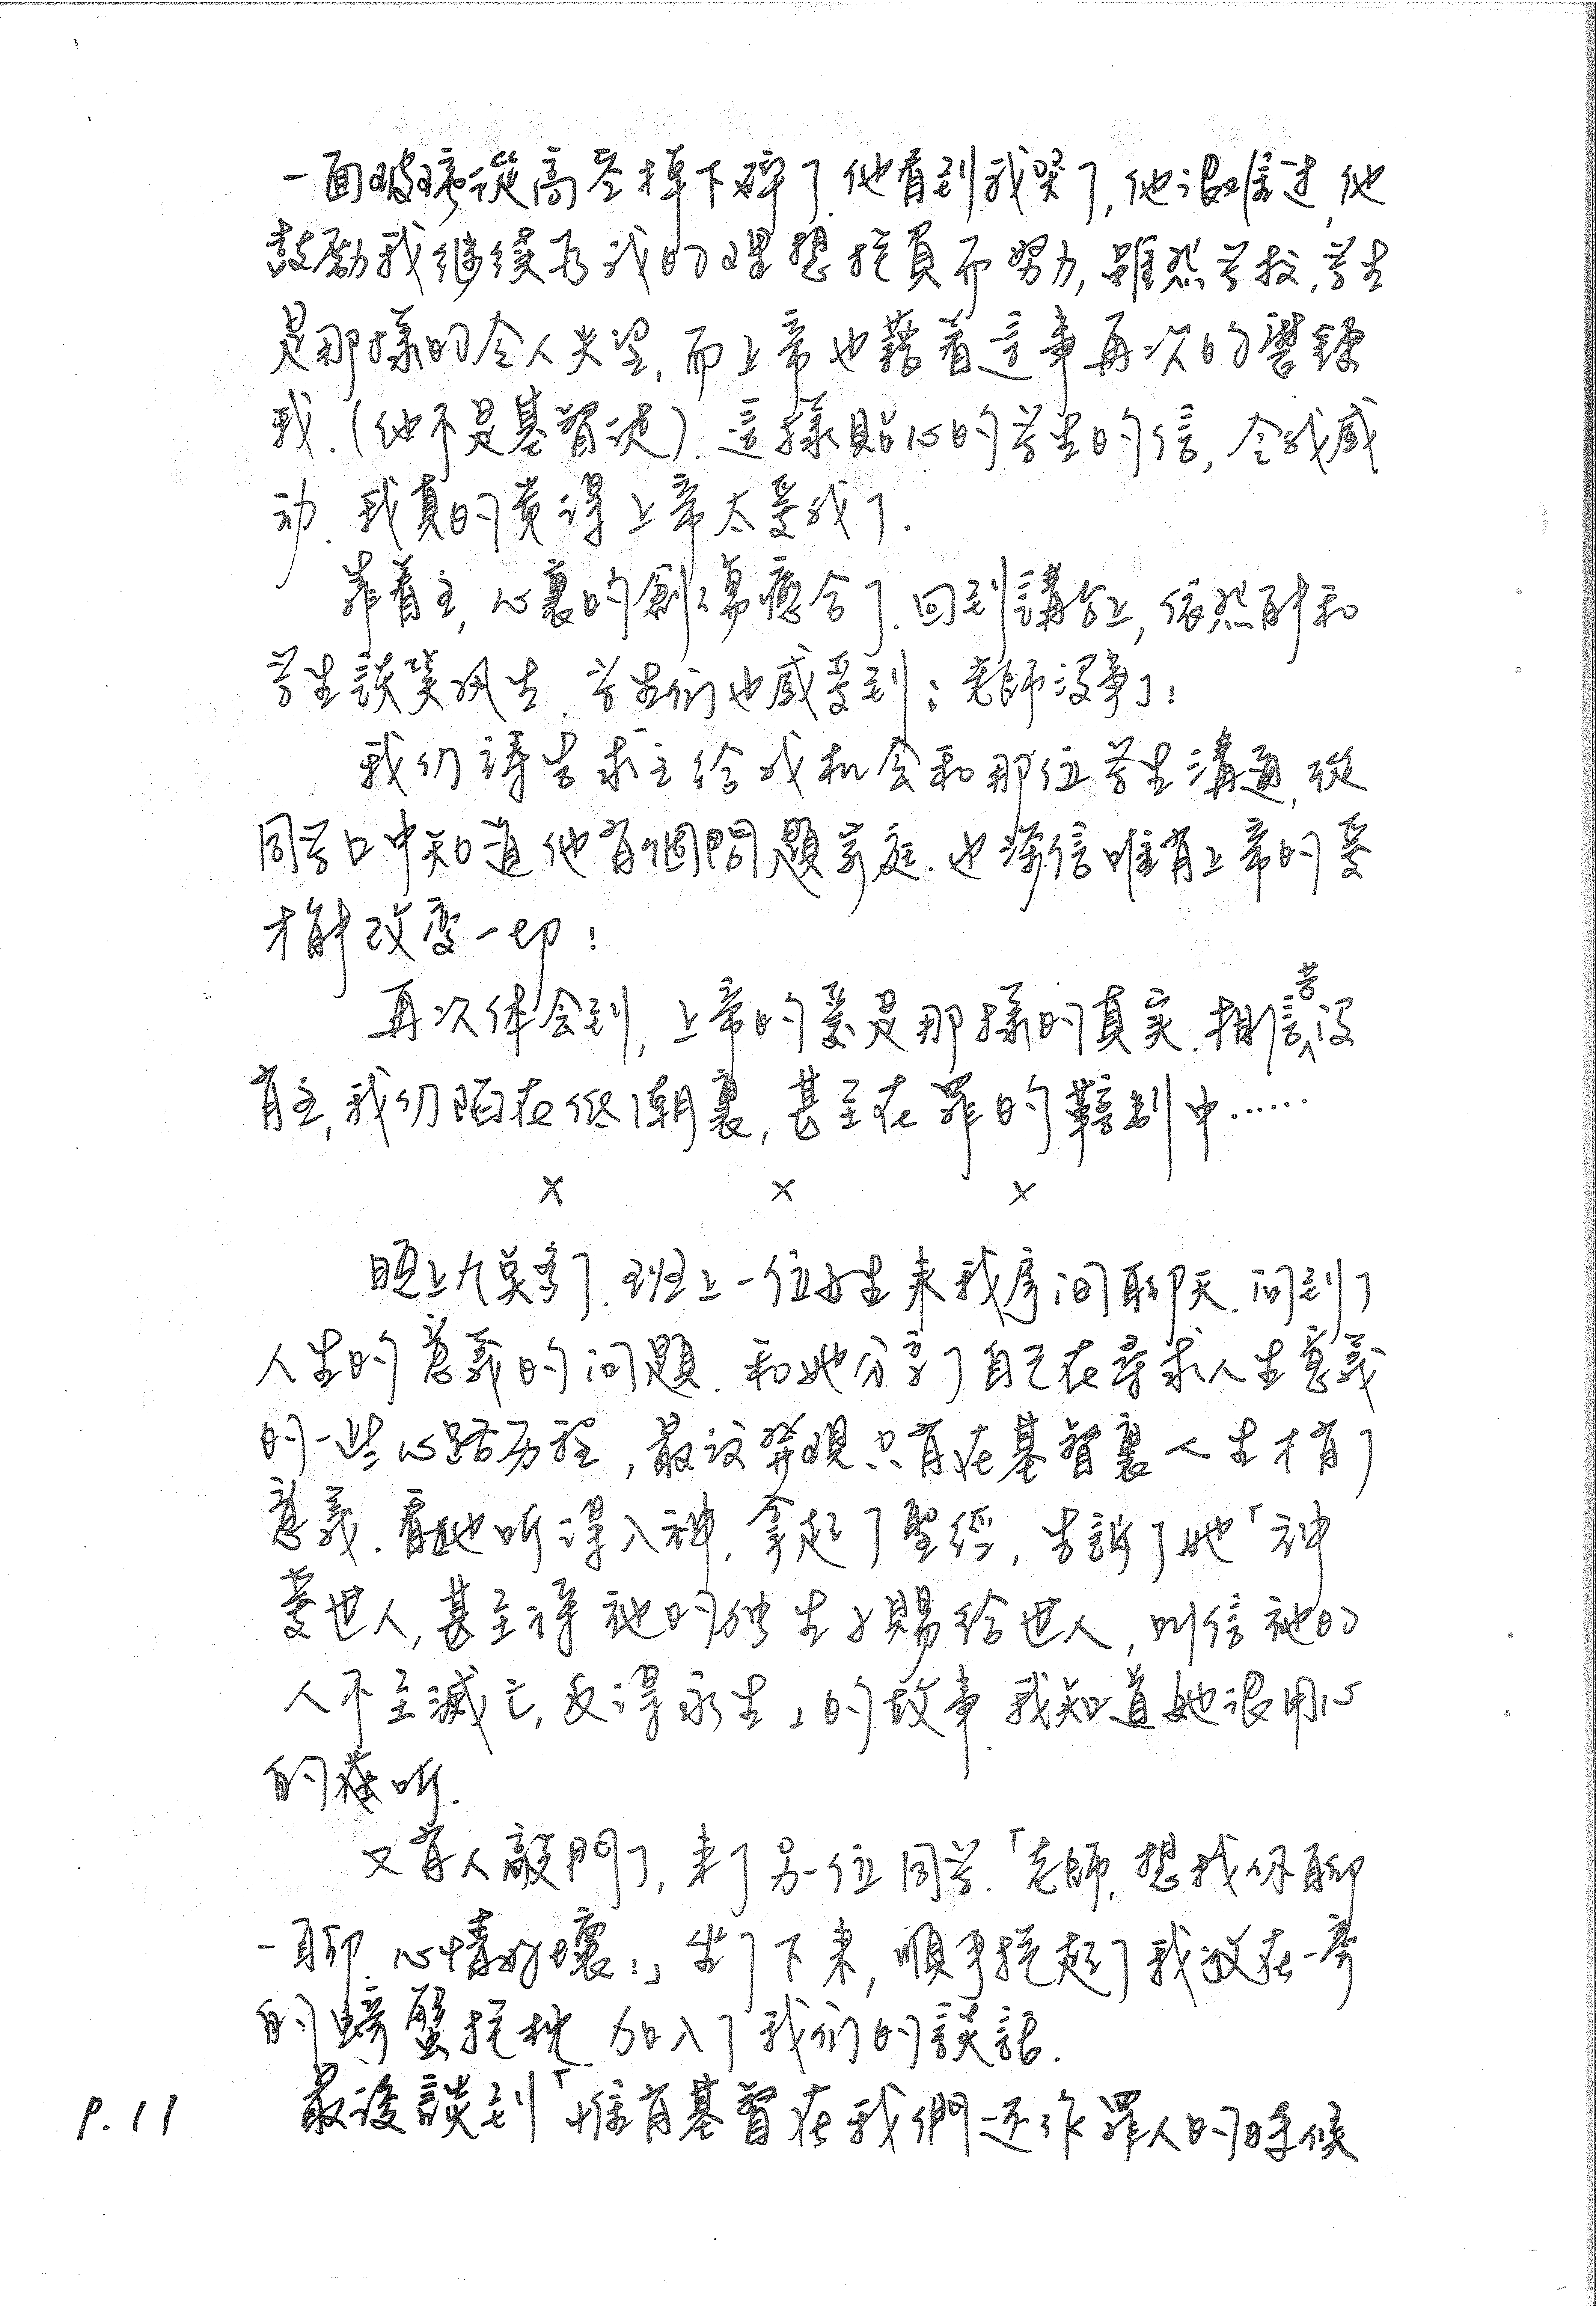 一面玻璃從高空掉下碎了. 他看到我哭了, 他很难过, 他
鼓励我继续为我的理想抱負而努力, 雖然学校, 学生
是那樣的令人失望, 而上帝也藉着這事再次的磨鍊
我. (他不是基督徒). 這樣貼心的学生的信, 令我感
动. 我真的覚得上帝太爱我了.
靠着主, 心裏的創傷癒合了. 回到講台上, 依然能和
学生談笑风生. 学生们也感受到: 老師沒事了!
我们祷告求主给我机会和那位学生溝通, 從
同学口中知道他有個問題家庭. 也深信唯有上帝的爱
才能改变一切!
再次体会到, 上帝的爱是那樣的真实. 相信若没
有主, 我们陷在低潮裏, 甚至在罪的轄制中……
× × ×
晚上九点多了. 班上一位女生来我房间聊天. 问到了
人生的意義的问題. 和她分享了自己在尋求人生意義
的一些心路历程, 最后發現只有在基督裏人生才有了
意義. 看她听得入神, 拿起了聖經, 告訴了她「神
爱世人, 甚至将祂的独生子賜给世人, 叫信祂的
人不至滅亡, 反得永生」的故事. 我知道她很用心
的在听.
又有人敲門了, 来了另一位同学.「老師, 想找你聊
一聊. 心情好壞!」坐了下来, 順手抱起了我放在一旁
的螃蟹抱枕. 加入了我们的談話.
最後談到「惟有基督在我們还作罪人的時候
P.11